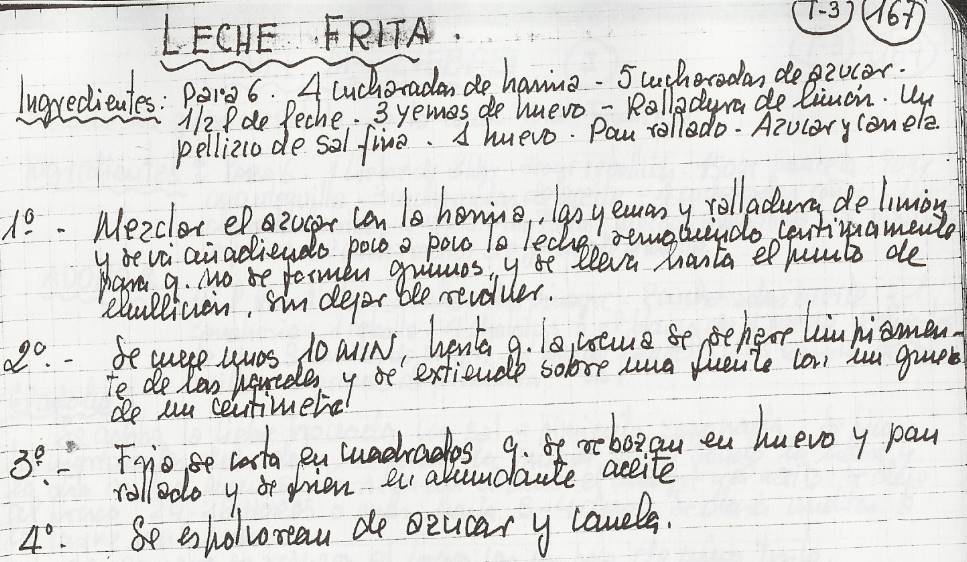 T-3 167
LECHE FRITA.
Ingredientes: Para 6. 4 cucharadas de harina - 5 cucharadas de azucar.
1/2 l de leche. 3 yemas de huevo - Ralladura de limón. Un
pellizco de sal fina. 1 huevo. Pan rallado - Azucar y canela
1º - Mezclar el azucar con la harina, las yemas y ralladura de limón
y se va añadiendo poco a poco la leche, removiendo continuamente
para q. no se formen grumos, y se lleva hasta el punto de
ebullición, sin dejar de revolver.
2º - Se cuece unos 10 MIN, hasta q. la crema se separe limpiamen-
te de las paredes y se extiende sobre una fuente con un grueso
de un centimetro
3º - Fria se corta en cuadrados q. se rebozan en huevo y pan
rallado y se frien en abundante aceite
4º - Se espolvorean de azucar y canela.